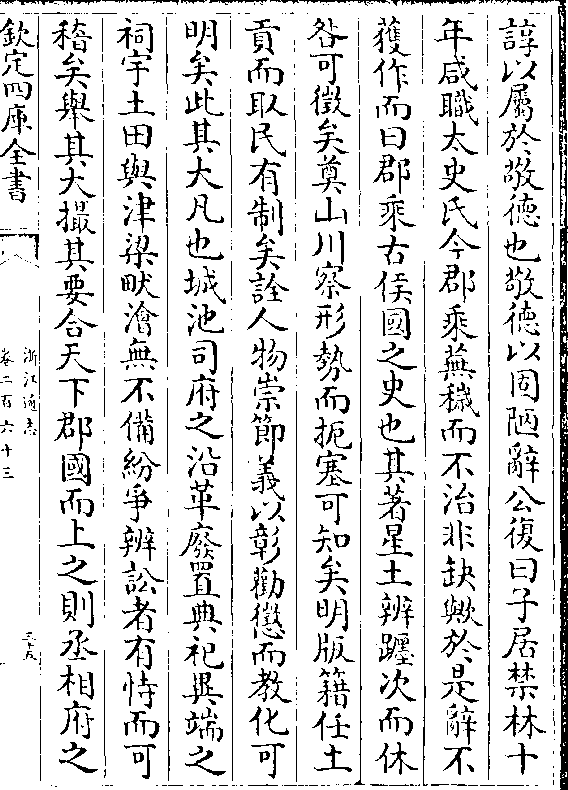 諄以屬於敬德也敬德以固陋辭公復曰子居禁林十
年咸職太史氏今郡乘蕪穢而不治非缺歟於是辭不
獲作而曰郡乘古侯國之史也其著星土辨躔次而休
咎可徵矣奠山川察形勢而扼塞可知矣明版籍任土
貢而取民有制矣詮人物崇節義以彰勸懲而教化可
明矣此其大凡也城池司府之沿革廢置典祀異端之
祠宇土田與津梁畎澮無不備紛爭辨訟者有恃而可
稽矣舉其大撮其要合天下郡國而上之則丞相府之
欽定四庫全書
浙江通志
卷二百六十三
三十五